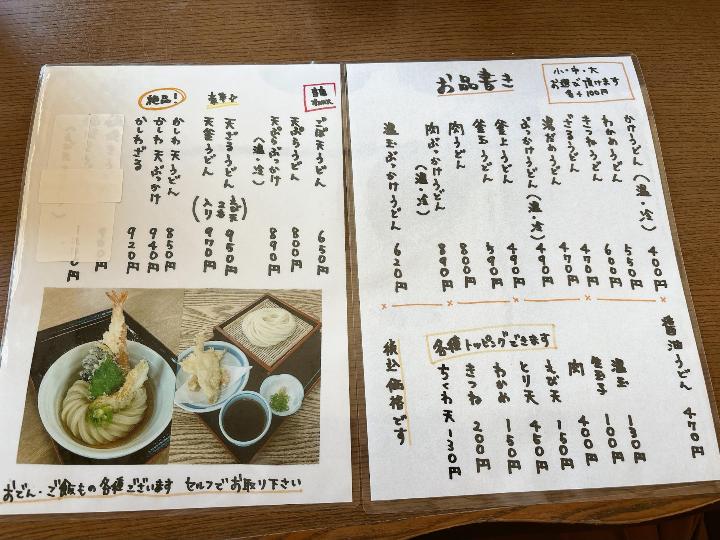 お品書き
小・中・大
お選び頂けます
各+100円
かけうどん(温・冷) 400円
わかめうどん 550円
きつねうどん 600円
ざるうどん 470円
湯だめうどん 470円
ぶっかけうどん(温・冷) 490円
釜上うどん 490円
釜玉うどん 590円
肉うどん 800円
肉ぶっかけうどん(温・冷) 890円
温玉ぶっかけうどん 620円
醤油うどん 470円
各種トッピングできます
温玉 130円
生玉子 100円
肉 400円
えび天 150円
とり天 450円
わかめ 150円
きつね 200円
ちくわ天 130円
税込価格です
ごぼ天うどん 650円
天ぷらうどん 800円
天ぷらぶっかけ(温・冷) 890円
豪華♪
天ざるうどん 950円
天釜うどん 970円
(えび天2本入り)
絶品!
かしわ天うどん 850円
かしわ天ぶっかけ 940円
かしわざる 920円
おでん・ご飯もの各種ございます セルフでお取り下さい